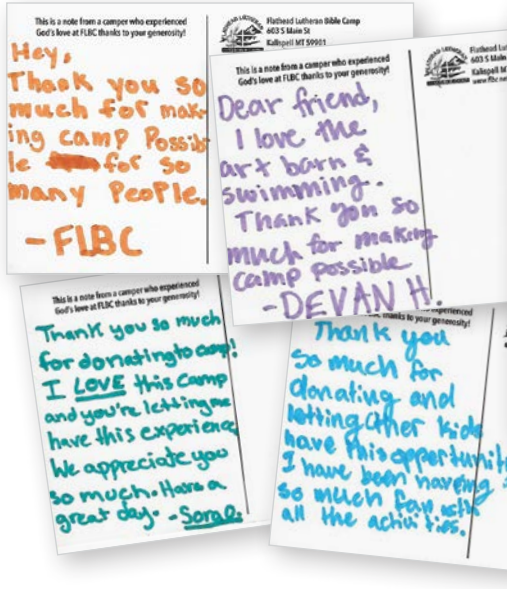 This is a note from a camper who experienced
God's love at FLBC thanks to your generosity!
Flathead Lutheran Bible Camp
603 S Main St
Kalispell MT 59901
Hey,
Thank you so
much for mak-
ing camp Possib
le for so
many People.
- FLBC
This is a note from a camper who experienced
God's love at FLBC thanks to your generosity!
Flathead Lut
603 S Main
Kalispell M
www.flbc.ne
Dear friend,
I love the
art barn &
swimming.
Thank you so
much for making
camp possible
- DEVAN H.
This is a note from a camper who experienced
God's love at FLBC thanks to your generosity!
Thank you so much
for donating to camp!
I LOVE this camp
and you're letting me
have this experience
We appreciate you
so much. Have a
great day. -
experienced
thanks to your generosity!
Thank you
so much for
donating and
letting other kids
have this opportunit
I have been having
so much fun with
all the activities.